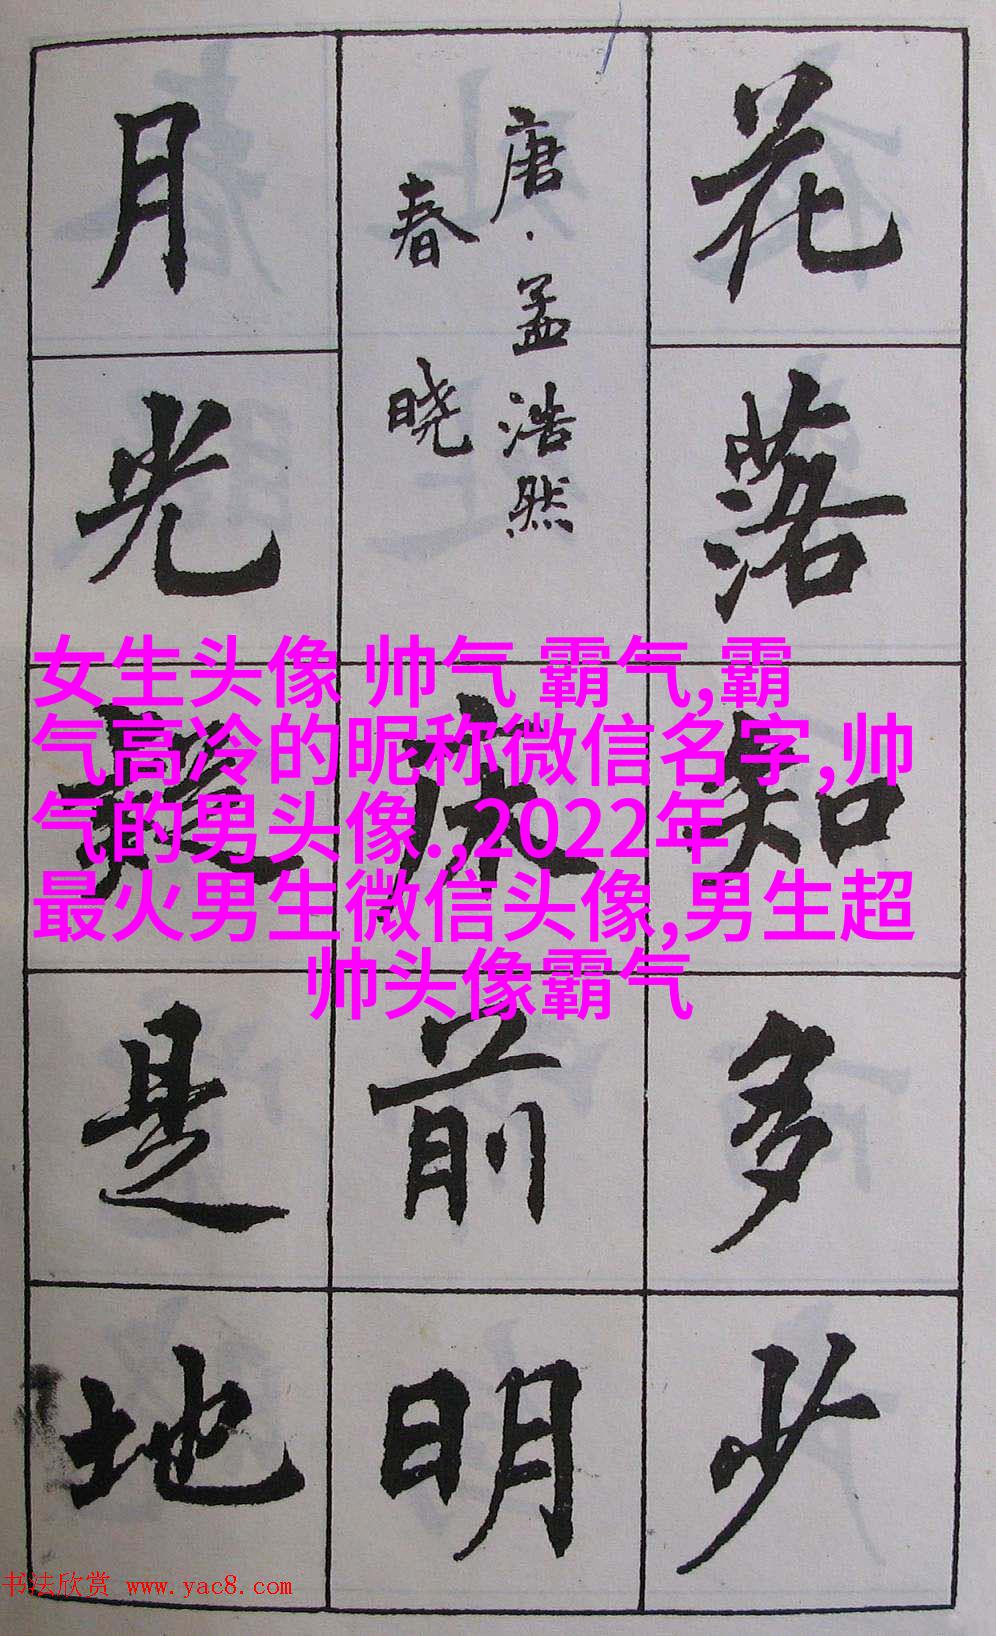 花落知多少
唐·孟浩然
春晓
床前明
月光疑是地
女生头像 帅气 霸气,霸
气高冷的昵称微信名字,帅
气的男头像.,2022年
最火男生微信头像,男生超
帅头像霸气
书法欣赏 www.yac8.com